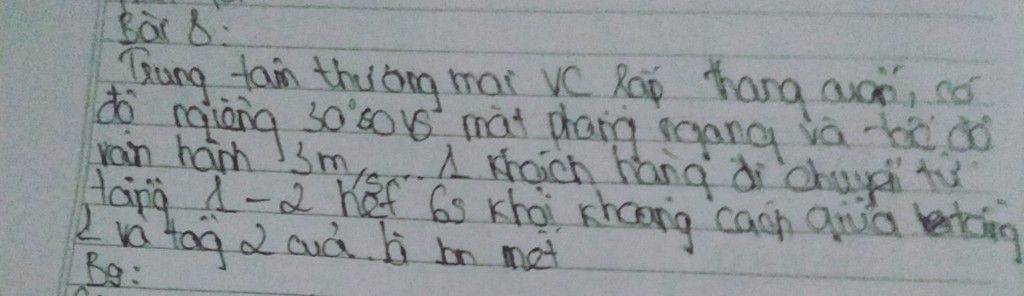 Bài 8:
Trung tâm thương mại VC Ráp thang cuốn, có
độ nghiêng 30° so vs mặt phẳng ngang và tốc độ
vận hành 3m/s. 1 khách hàng di chuyển từ
tầng 1-2 hết 6s khỏi khoảng cách giữa tầng
1 và tầng 2 cuả là bn mét
Bg: